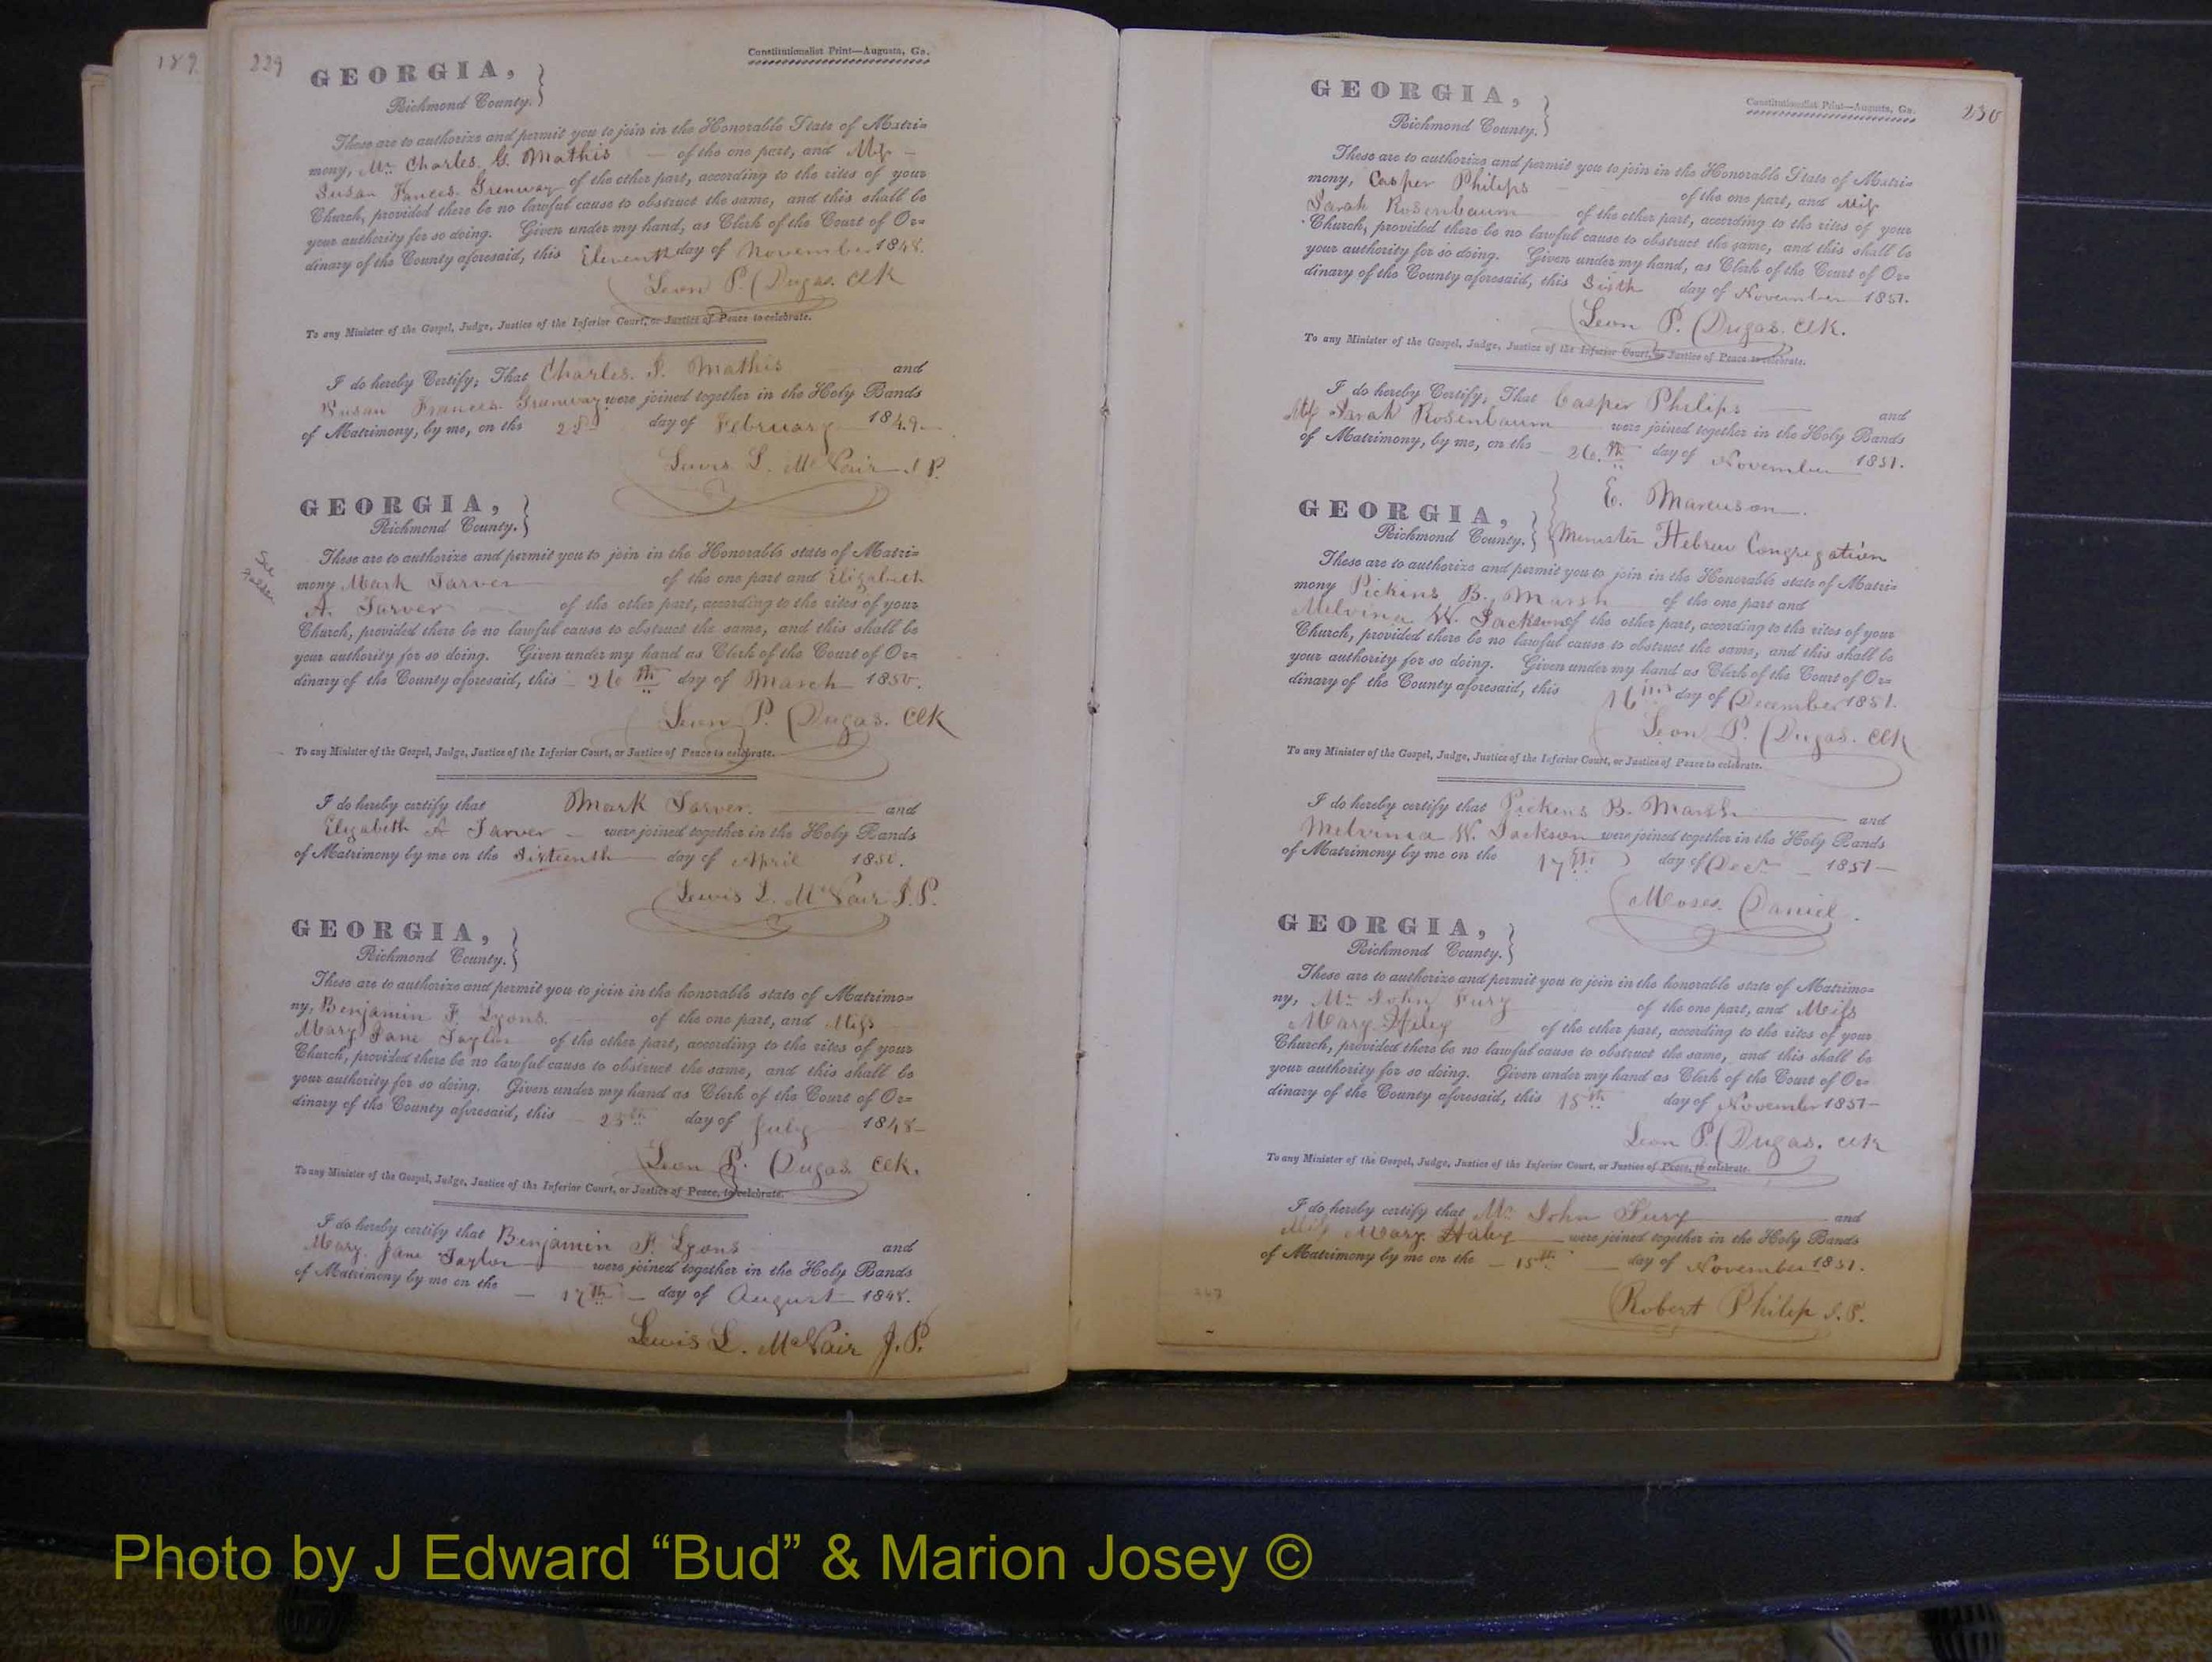 189.
229
Constitutionalist Print—Augusta, Ga.
GEORGIA,
Richmond County.
These are to authorize and permit you to join in the Honorable State of Matri=
mony, Mr. Charles. G. Mathis of the one part, and Miss
Susan Fances. Grenway of the other part, according to the rites of your
Church, provided there be no lawful cause to obstruct the same, and this shall be
your authority for so doing. Given under my hand, as Clerk of the Court of Or=
dinary of the County aforesaid, this Eleventh day of November 1848.
Leon P. Dugas. Clk
To any Minister of the Gospel, Judge, Justice of the Inferior Court, or Justice of Peace to celebrate.
I do hereby Certify; That Charles. G. Mathis and
Susan Frances. Grenway were joined together in the Holy Bands
of Matrimony, by me, on the day of February 1849.
Lewis L. McNair J.P.
GEORGIA,
Richmond County.
See
These are to authorize and permit you to join in the Honorable state of Matri=
mony Mark Tarver of the one part and Elizabeth
A. Tarver of the other part, according to the rites of your
Church, provided there be no lawful cause to obstruct the same, and this shall be
your authority for so doing. Given under my hand as Clerk of the Court of Or=
dinary of the County aforesaid, this 26th day of March 1850.
Leon P. Dugas. Clk
To any Minister of the Gospel, Judge, Justice of the Inferior Court, or Justice of Peace to celebrate.
I do hereby certify that Mark Tarver. and
Elizabeth A Tarver were joined together in the Holy Bands
of Matrimony by me on the Sixteenth day of April 1850.
Lewis L. McNair J.P.
GEORGIA,
Richmond County.
These are to authorize and permit you to join in the honorable state of Matrimo=
ny, Benjamin F. Lyons. of the one part, and Miss
Mary Jane Taylor of the other part, according to the rites of your
Church, provided there be no lawful cause to obstruct the same, and this shall be
your authority for so doing. Given under my hand as Clerk of the Court of Or=
dinary of the County aforesaid, this 25th day of July 1848
Leon P. Dugas Clk.
To any Minister of the Gospel, Judge, Justice of the Inferior Court, or Justice of Peace, to celebrate.
I do hereby certify that Benjamin F. Lyons and
Mary. Jane Taylor were joined together in the Holy Bands
of Matrimony by me on the 17th day of August 1848.
Lewis L. McNair J.P.
Constitutionalist Print—Augusta, Ga.
230
GEORGIA,
Richmond County.
These are to authorize and permit you to join in the Honorable State of Matri=
mony, Casper Philips of the one part, and Miss
Sarah Rosenbaum of the other part, according to the rites of your
Church, provided there be no lawful cause to obstruct the same, and this shall be
your authority for so doing. Given under my hand, as Clerk of the Court of Or=
dinary of the County aforesaid, this Sixth day of November 1851.
Leon P. Dugas. Clk.
To any Minister of the Gospel, Judge, Justice of the Inferior Court, or Justice of Peace to celebrate.
I do hereby Certify; That Casper Philips and
Miss Sarah Rosenbaum were joined together in the Holy Bands
of Matrimony, by me, on the 26th day of November 1851.
E. Marcuson.
Minister Hebrew Congregation
GEORGIA,
Richmond County.
These are to authorize and permit you to join in the Honorable state of Matri=
mony Pickins B. Marsh of the one part and
Melvina W. Jackson of the other part, according to the rites of your
Church, provided there be no lawful cause to obstruct the same, and this shall be
your authority for so doing. Given under my hand as Clerk of the Court of Or=
dinary of the County aforesaid, this 16th day of December 1851.
Leon P. Dugas. Clk
To any Minister of the Gospel, Judge, Justice of the Inferior Court, or Justice of Peace to celebrate.
I do hereby certify that Pickens B. Marsh and
Melvinia W. Jackson were joined together in the Holy Bands
of Matrimony by me on the 17th day of Decr 1851
Moses. Daniel.
GEORGIA,
Richmond County.
These are to authorize and permit you to join in the honorable state of Matrimo=
ny, Mr John Fury of the one part, and Miss
Mary of the other part, according to the rites of your
Church, provided there be no lawful cause to obstruct the same, and this shall be
your authority for so doing. Given under my hand as Clerk of the Court of Or=
dinary of the County aforesaid, this 15th day of November 1851
Leon P. Dugas. Clk
To any Minister of the Gospel, Judge, Justice of the Inferior Court, or Justice of Peace, to celebrate.
I do hereby certify that Mr John Fury and
Miss Mary. were joined together in the Holy Bands
of Matrimony by me on the 15th day of November 1851.
Robert Philip J.P.
Photo by J Edward “Bud” & Marion Josey ©